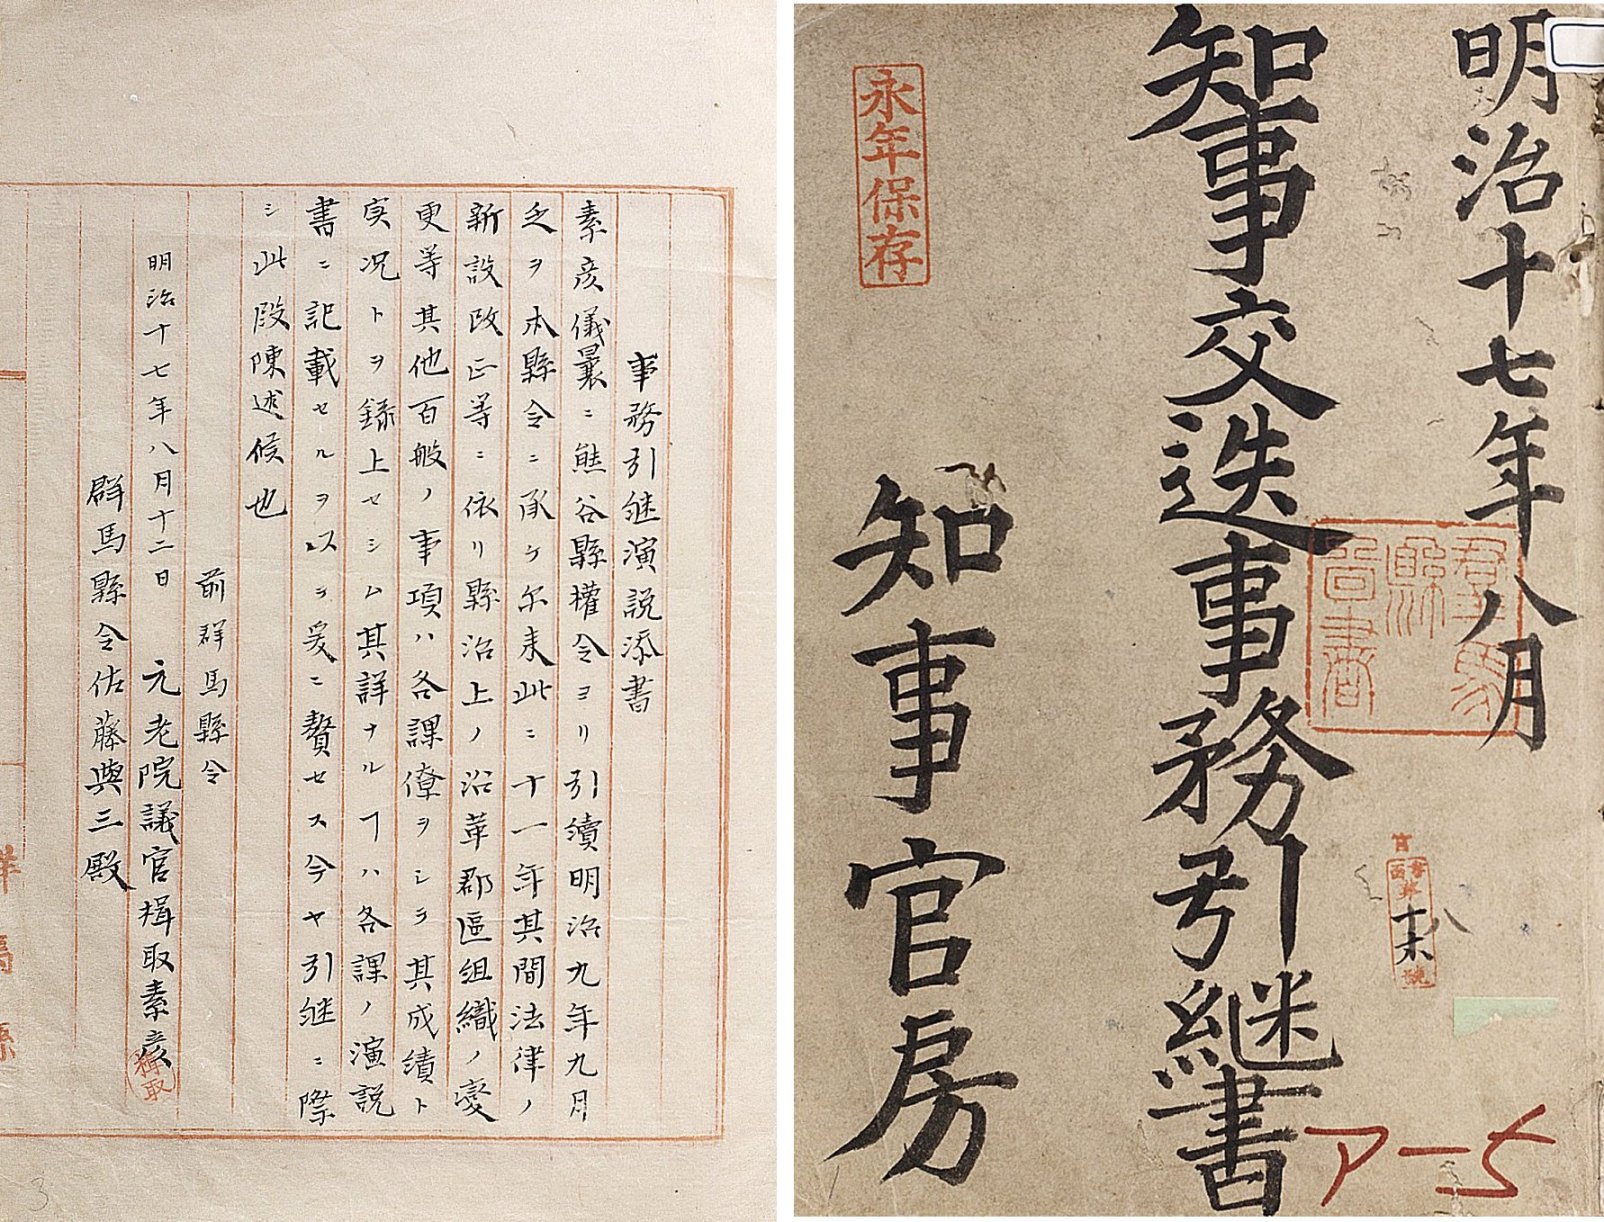 明治十七年八月
知事交迭事務引継書
知事官房
永年保存
群馬
縣
圖書
ア一5
事務引継演説添書
素彦儀曩ニ熊谷縣權令ヨリ引續明治九年九月
乏ヲ本縣令ニ承ケ尓来此ニ十一年其間法律ノ
新設改正等ニ依リ縣治上ノ沿革郡區組織ノ変
更等其他百般ノ事項ハ各課僚ヲシテ其成績ト
実况トヲ録上セシム其詳ナルヿハ各課ノ演説
書ニ記載セルヲ以テ爰ニ贅セス今ヤ引継ニ際
シ此段陳述候也
前群馬縣令
明治十七年八月十二日 元老院議官楫取素彦
楫取
群馬縣令佐藤與三殿
群馬縣
3